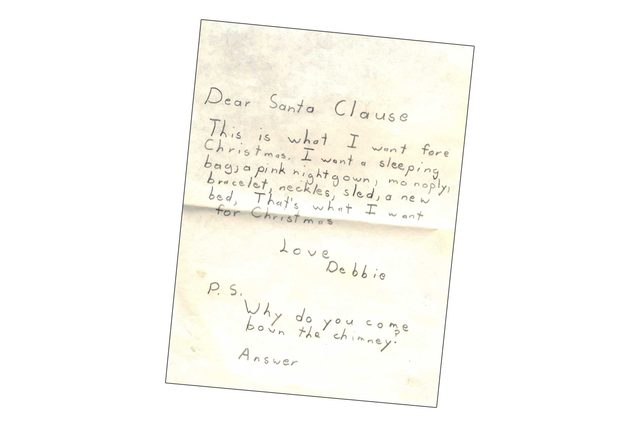 Dear Santa Clause
This is what I want fore
Christmas. I want a sleeping
bag, a pink nightgown, monoply,
bracelet, neckles, sled, a new
bed, That's what I want
for Christmas
Love
Debbie
P. S.
Why do you come
bown the chimney?
Answer